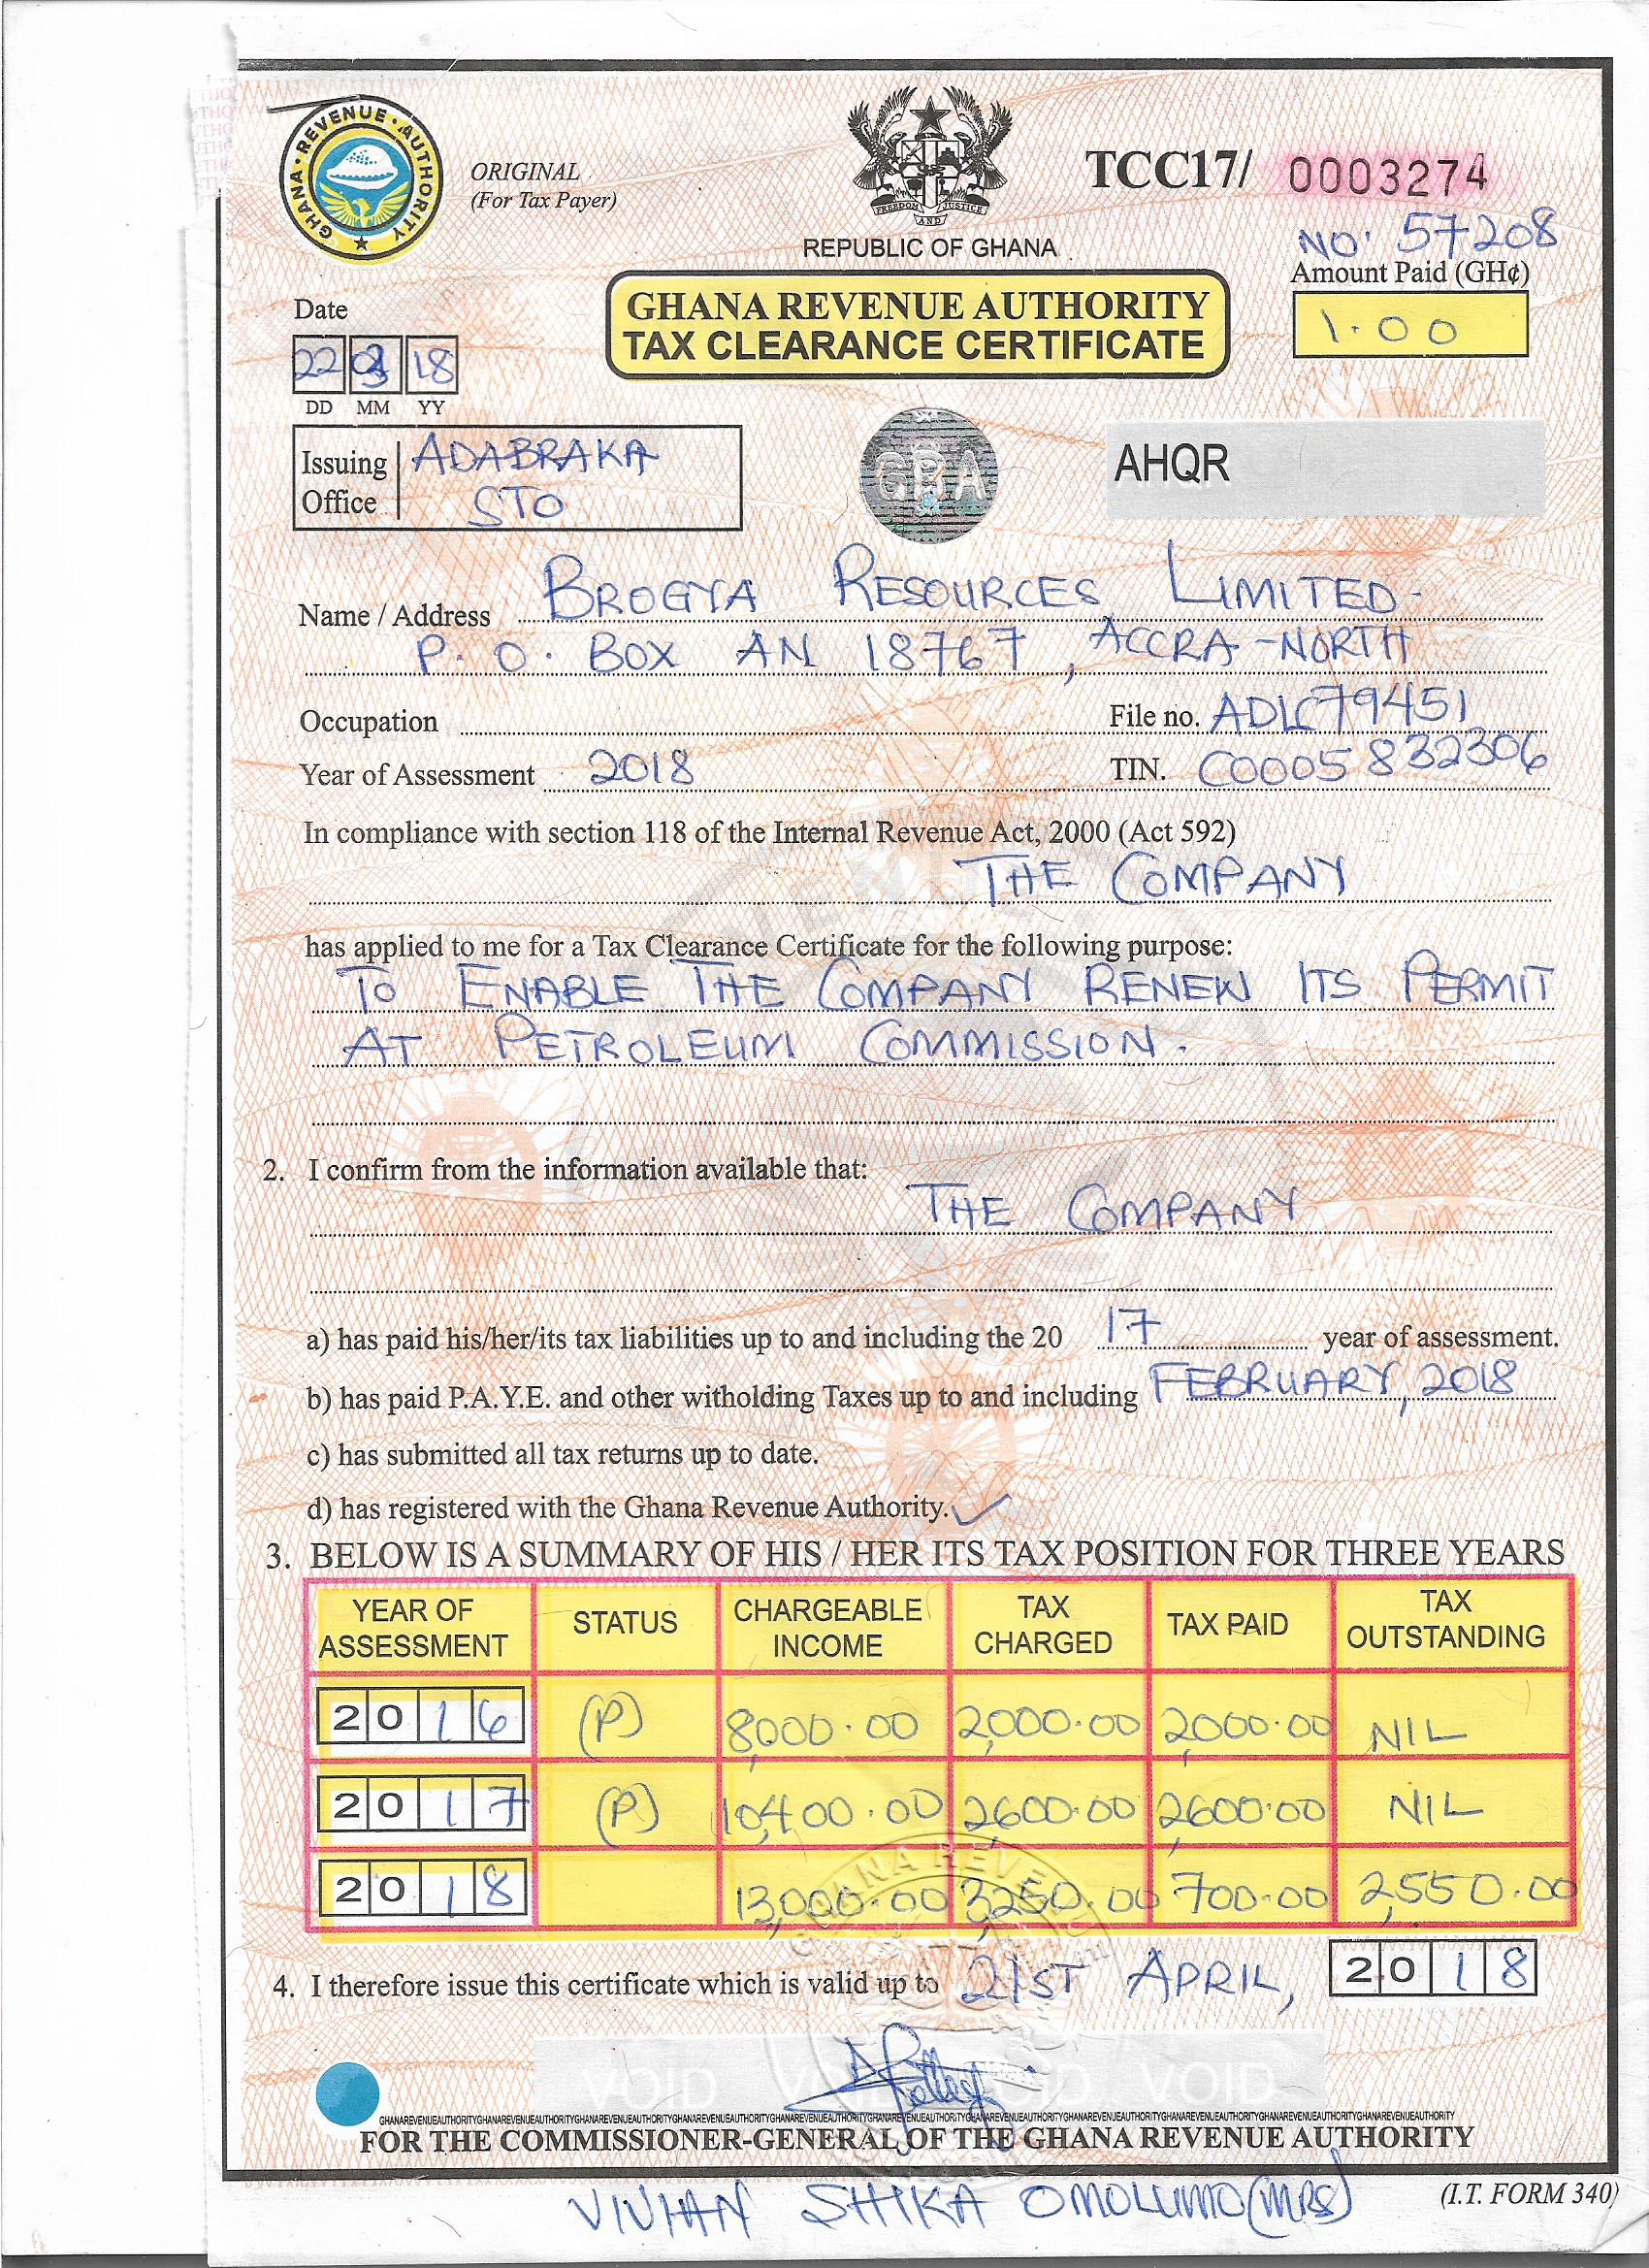 GHANA · REVENUE · AUTHORITY
ORIGINAL
(For Tax Payer)
FREEDOM AND JUSTICE
REPUBLIC OF GHANA
TCC17/ 0003274
NO. 57208
Amount Paid (GH¢)
1.00
GHANA REVENUE AUTHORITY
TAX CLEARANCE CERTIFICATE
Date
22 03 18
DD MM YY
Issuing Office ADABRAKA
STO
GRA
AHQR
Name / Address BROGYA RESOURCES LIMITED-
P. O. BOX AN 18767, ACCRA-NORTH
Occupation File no. ADLC79451
Year of Assessment 2018 TIN. C0005832306
In compliance with section 118 of the Internal Revenue Act, 2000 (Act 592)
THE COMPANY
has applied to me for a Tax Clearance Certificate for the following purpose:
TO ENABLE THE COMPANY RENEW ITS PERMIT
AT PETROLEUM COMMISSION.
2. I confirm from the information available that:
THE COMPANY
a) has paid his/her/its tax liabilities up to and including the 20 17 year of assessment.
b) has paid P.A.Y.E. and other witholding Taxes up to and including FEBRUARY, 2018
c) has submitted all tax returns up to date.
d) has registered with the Ghana Revenue Authority. ✓
3. BELOW IS A SUMMARY OF HIS / HER ITS TAX POSITION FOR THREE YEARS
YEAR OF ASSESSMENT STATUS CHARGEABLE INCOME TAX CHARGED TAX PAID TAX OUTSTANDING
2016 (P) 8,000.00 2,000.00 2,000.00 NIL
2017 (P) 10,400.00 2,600.00 2,600.00 NIL
2018 13,000.00 3,250.00 700.00 2,550.00
4. I therefore issue this certificate which is valid up to 21ST APRIL, 2018
VOID VOID VOID
GHANAREVENUEAUTHORITYGHANAREVENUEAUTHORITYGHANAREVENUEAUTHORITYGHANAREVENUEAUTHORITYGHANAREVENUEAUTHORITYGHANAREVENUEAUTHORITYGHANAREVENUEAUTHORITYGHANAREVENUEAUTHORITYGHANAREVENUEAUTHORITYGHANAREVENUEAUTHORITY
FOR THE COMMISSIONER-GENERAL OF THE GHANA REVENUE AUTHORITY
VIVIAN SHIKA OMOLUMO (MRS)
(I.T. FORM 340)